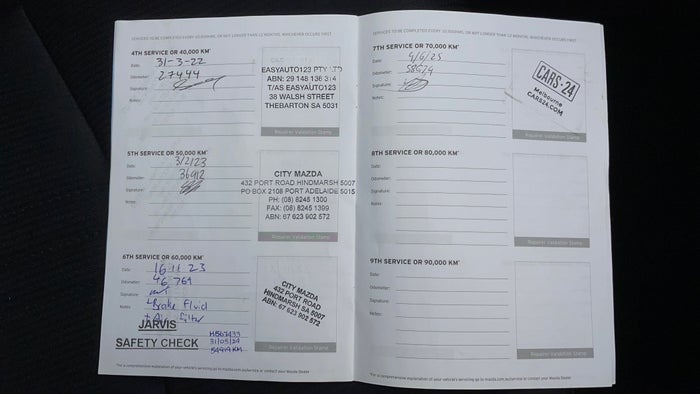 SERVICES TO BE COMPLETED EVERY 10,000KM, OR NO LONGER THAN 12 MONTHS, WHICHEVER OCCURS FIRST
4TH SERVICE OR 40,000 KM*
Date: 31-3-22
Odometer: 27444
Signature:
Notes:
EASYAUTO123 PTY LTD
ABN: 29 148 136 314
T/AS EASYAUTO123
38 WALSH STREET
THEBARTON SA 5031
Repairer Validation Stamp
5TH SERVICE OR 50,000 KM*
Date: 3/2/23
Odometer: 36912
Signature:
Notes:
CITY MAZDA
432 PORT ROAD HINDMARSH 5007
PO BOX 2108 PORT ADELAIDE 5015
PH: (08) 8245 1300
FAX: (08) 8245 1399
ABN: 67 623 902 572
Repairer Validation Stamp
6TH SERVICE OR 60,000 KM*
Date: 16-11-23
Odometer: 46 769
Signature:
Notes: Brake Fluid
+ Air Filter
JARVIS
SAFETY CHECK
31/05/24
54919KM
CITY MAZDA
432 PORT ROAD
HINDMARSH SA 5007
ABN: 67 623 902 572
Repairer Validation Stamp
*For a comprehensive explanation of your vehicle's servicing go to mazda.com.au/service or contact your Mazda Dealer
SERVICES TO BE COMPLETED EVERY 10,000KM, OR NO LONGER THAN 12 MONTHS, WHICHEVER OCCURS FIRST
7TH SERVICE OR 70,000 KM*
Date: 4/6/25
Odometer:
Signature:
Notes:
CARS-24
Melbourne
CARS24.COM
Repairer Validation Stamp
8TH SERVICE OR 80,000 KM*
Date:
Odometer:
Signature:
Notes:
Repairer Validation Stamp
9TH SERVICE OR 90,000 KM*
Date:
Odometer:
Signature:
Notes:
Repairer Validation Stamp
*For a comprehensive explanation of your vehicle's servicing go to mazda.com.au/service or contact your Mazda Dealer